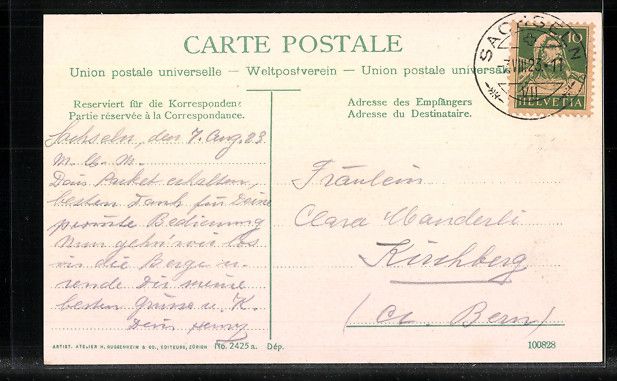 CARTE POSTALE
Union postale universelle – Weltpostverein – Union postale universelle
Reserviert für die Korrespondenz
Partie réservée à la Correspondance.
Sachseln, den 7. Aug. 23
M. l. M.
Dein Packet erhalten,
besten Dank für Deine
prompte Bedienung
Nun gehn wir los
in die Berge u.
sende Dir meine
besten Grüsse u. K.
Dein Henry
ARTIST. ATELIER H. GUGGENHEIM & CO., EDITEURS, ZÜRICH No. 2425 a. Dép.
SACHSELN
7.VIII.23.-11
10
HELVETIA
Adresse des Empfängers
Adresse du Destinataire.
Fräulein
Clara Manderli
Kirchberg
(Ct. Bern)
100828